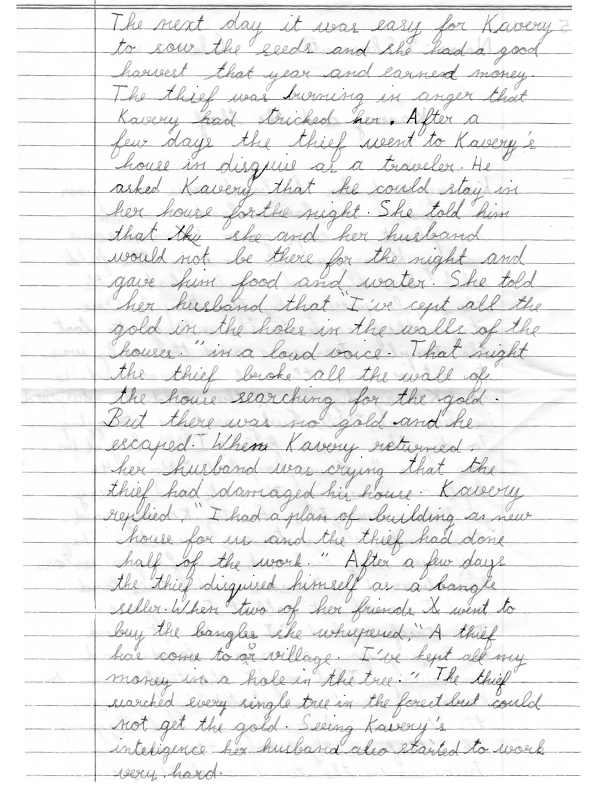 The next day it was easy for Kavery
to sow the seeds and she had a good
harvest that year and earned money.
The thief was burning in anger that
Kavery had tricked her. After a
few days the thief went to Kavery's
house in disguise as a traveler. He
asked Kavery that he could stay in
her house forthe night. She told him
that the she and her husband
would not be there for the night and
gave him food and water. She told
her husband that "I've cept all the
gold in the holes in the walls of the
houses." in a loud voice. That night
the thief broke all the wall of
the house searching for the gold.
But there was no gold and he
escaped. When Kavery returned.
her husband was crying that the
thief had damaged his house. Kavery
replied, "I had a plan of building as new
house for us and the thief had done
half of the work." After a few days
the thief disguised himself as a bangle
seller. When two of her friends X went to
buy the bangles she whispered, "A thief
has come to or village. I've kept all my
money in a hole in the tree." The thief
searched every single tree in the forest but could
not get the gold. Seeing Kavery's
inteligence her husband also started to work
very hard.